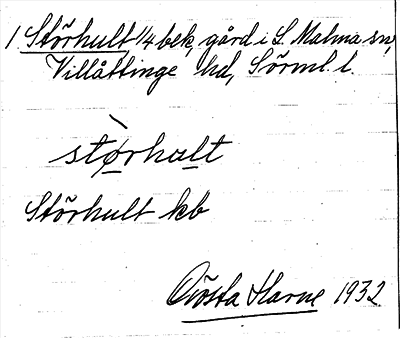 1 Störhult 1/4 bek, gård i L. Malma sn,
Villåttinge hd, Sörml. l.
stø̀rhult
Störhult kb
Gösta Harne 1932